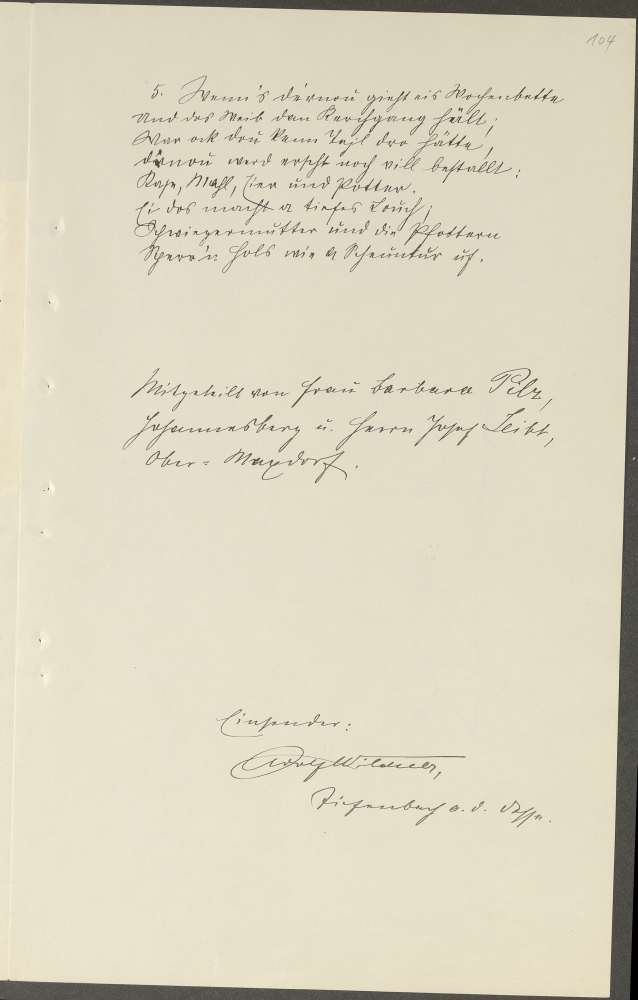 104
5. Wenn's dernou gieht eis Wochenbette
Und dos Weib dan Kerchgang hält,
War ock dou kenn Tajl dro hätte,
dernou werd erscht noch vill bestallt:
Kase, Mahl, Eier und Potter.
Ei dos macht a tiefes Louch;
Schwiegermutter und die Pfottern
Sperr'n Hols wie a Scheuntur uf.
Mitgeteilt von Frau Barbara Pilz,
Johannesberg u. Herrn Josef Leibt,
Ober-Maxdorf.
Einsender:
Adolf Wildner,
Tiefenbach a. d. Desse.